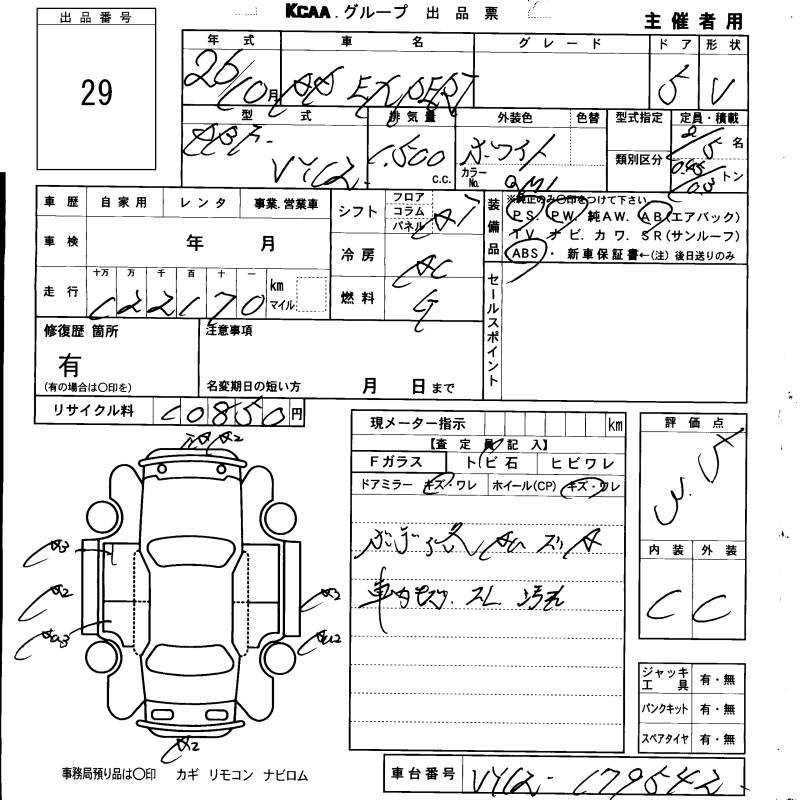 KCAA.グループ 出品票
主催者用
出品番号
29
年式 車名 グレード ドア 形状
26/10月 AD EXPERT 5 V
型式 排気量 外装色 色替 型式指定 定員・積載
ABF-VY12- 1,500 c.c. ホワイト カラーNo. QM1 類別区分 2/5名 トン
車歴 自家用 レンタ 事業.営業車
車検 年 月
走行 十万 万 千 百 十 一 122170 km マイル
シフト フロア コラム パネル AT
冷房 AC
燃料 G
装備品 ※純正のみ〇印をつけて下さい
PS. PW. 純AW. AB(エアバック)
TV. ナビ. カワ. SR(サンルーフ)
ABS・ 新車保証書←(注)後日送りのみ
セールスポイント
修復歴 箇所
有
(有の場合は〇印を)
注意事項
名変期日の短い方 月 日まで
リサイクル料 10850円
現メーター指示 km
【査定員記入】
Fガラス トビ石 ヒビワレ
ドアミラー キズ・ワレ ホイール(CP) キズ・ワレ
車内 スレ 汚れ
評価点
3.5
内装 外装
C C
A2
A3
A2
A2
A2
ジャッキ工具 有・無
パンクキット 有・無
スペアタイヤ 有・無
事務局預り品は〇印 カギ リモコン ナビロム
車台番号 VY12-179542-